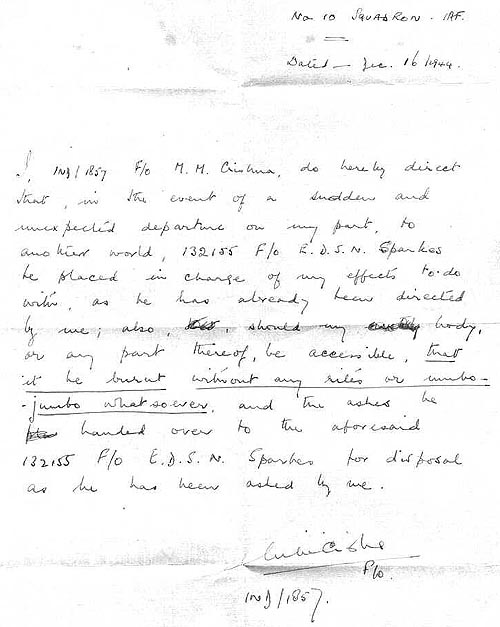 No 10 SQUADRON - IAF.
Dated - Dec. 16/1944.
I, IND/1857 F/o M. M. Crishna, do hereby direct
that, in the event of a sudden and
unexpected departure on my part, to
another world, 132155 F/o E.D.S.N. Sparkes
be placed in charge of my effects to do
with, as he has already been directed
by me; also, should my body,
or any part thereof, be accessible, that
it be burnt without any rites or umbo-
-jumbo whatsoever, and the ashes be
handed over to the aforesaid
132155 F/o E.D.S.N. Sparkes for disposal
as he has been asked by me.
F/o.
IND/1857.